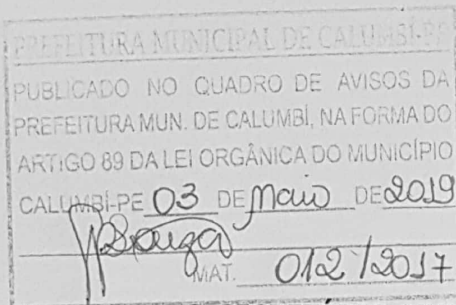 PREFEITURA MUNICIPAL DE CALUMBÍ-PE
PUBLICADO NO QUADRO DE AVISOS DA
PREFEITURA MUN. DE CALUMBÍ, NA FORMA DO
ARTIGO 89 DA LEI ORGÂNICA DO MUNICÍPIO
CALUMBÍ-PE 03 DE maio DE 2019
Souza
MAT. 012/2017